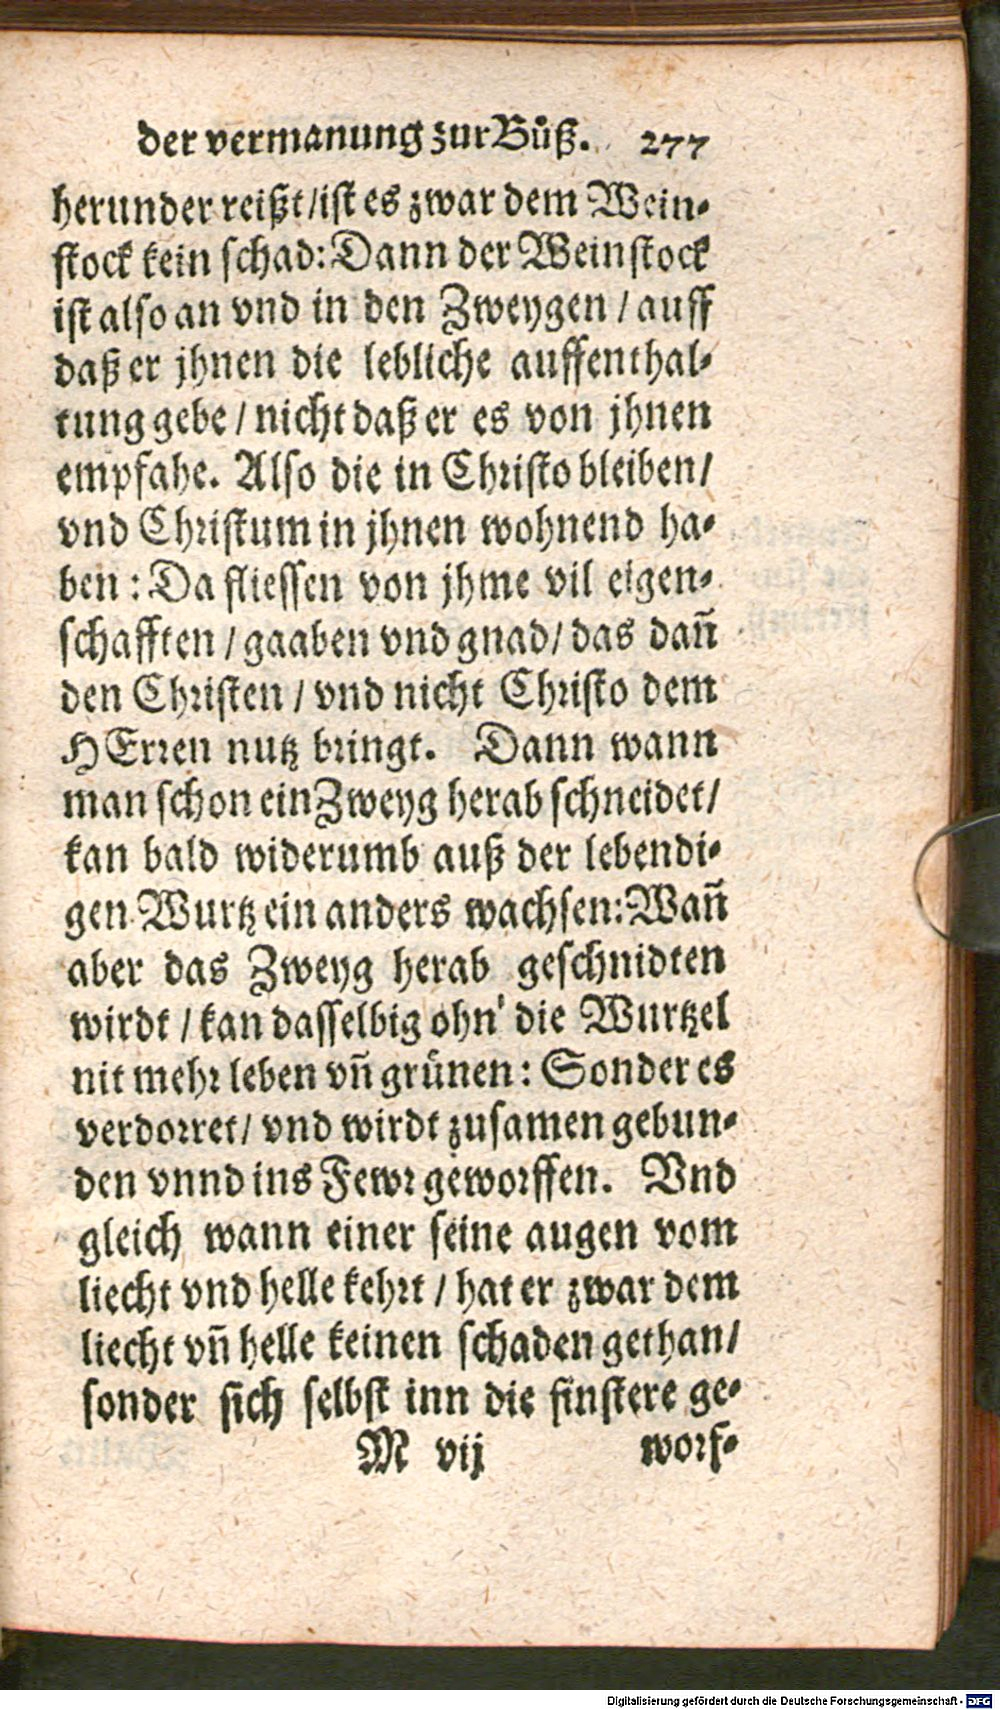 der vermanung zur Bůß. 277
herunder reißt/ist es zwar dem Wein-
stock kein schad: Dann der Weinstock
ist also an vnd in den Zweygen / auff
daß er jhnen die lebliche auffenthal-
tung gebe / nicht daß er es von jhnen
empfahe. Also die in Christo bleiben/
vnd Christum in jhnen wohnend ha-
ben: Da fliessen von jhme vil eigen-
schafften / gaaben vnd gnad/ das dañ
den Christen / vnd nicht Christo dem
HErren nutz bringt. Dann wann
man schon ein Zweyg herab schneidet/
kan bald widerumb auß der lebendi-
gen Wurtz ein anders wachsen: Wañ
aber das Zweyg herab geschnidten
wirdt / kan dasselbig ohn' die Wurtzel
nit mehr leben vñ grünen: Sonder es
verdorret/ vnd wirdt zusamen gebun-
den vnnd ins Fewr geworffen. Vnd
gleich wann einer seine augen vom
liecht vnd helle kehrt / hat er zwar dem
liecht vñ helle keinen schaden gethan/
sonder sich selbst inn die finstere ge-
M vij worf-
Digitalisierung gefördert durch die Deutsche Forschungsgemeinschaft - DFG